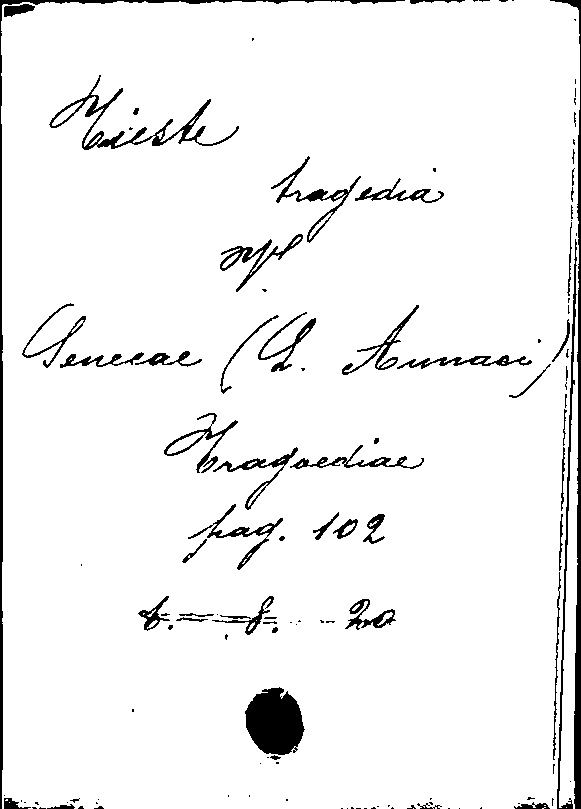 Tieste
tragedia
Senecae (L. Annaei)
Tragoediae
pag. 102
6. = 8. -- 20